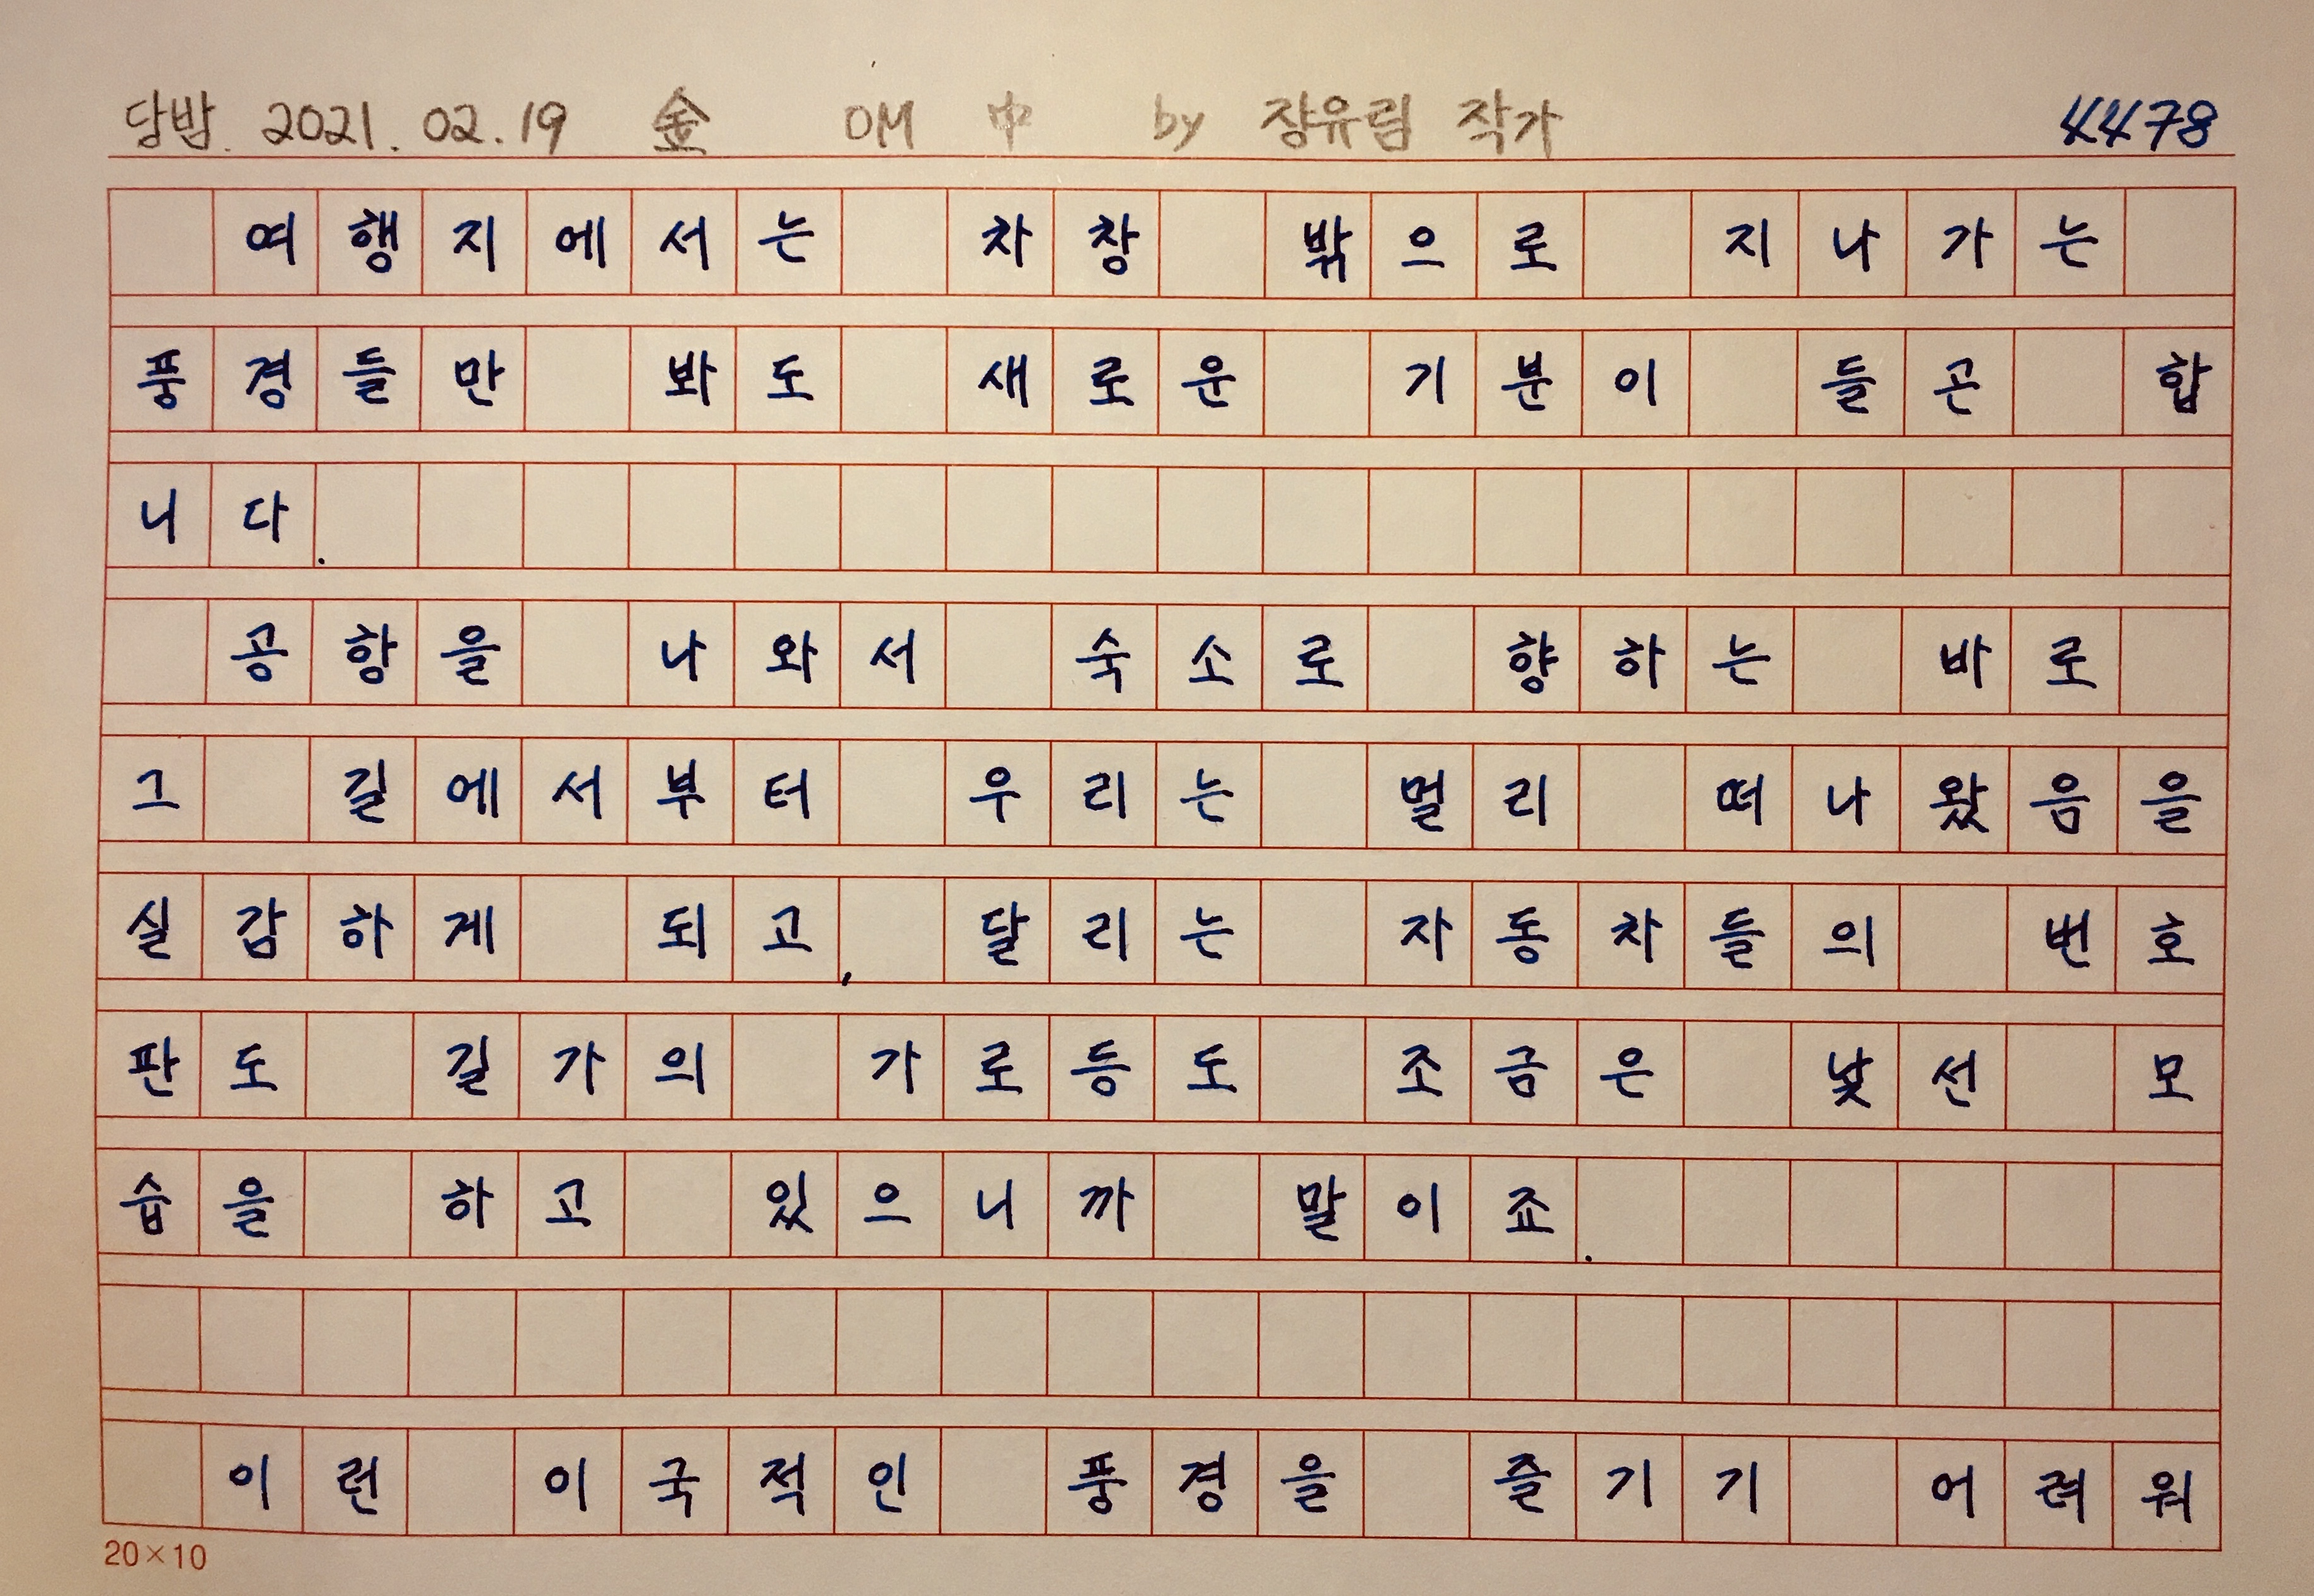 답밤. 2021.02.19 金 DM 中 by 장유림 작가 4478
여행지에서는 차창 밖으로 지나가는
풍경들만 봐도 새로운 기분이 들곤 합
니다.
공항을 나와서 숙소로 향하는 바로
그 길에서부터 우리는 멀리 떠나왔음을
실감하게 되고, 달리는 자동차들의 번호
판도 길가의 가로등도 조금은 낯선 모
습을 하고 있으니까 말이죠.
이런 이국적인 풍경을 즐기기 어려워
20×10